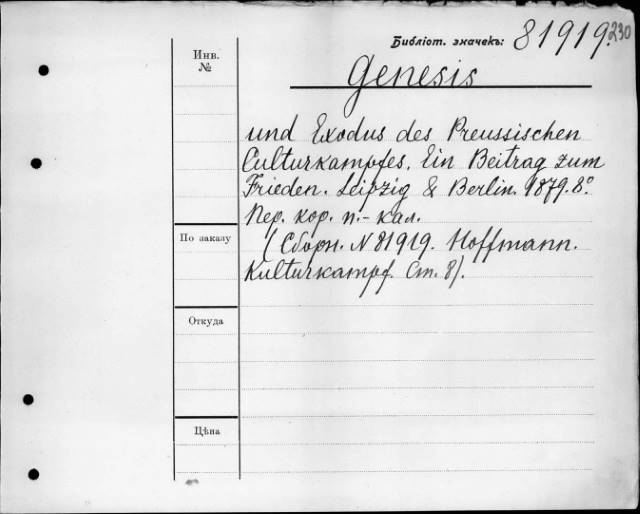 Библіот. значекъ: 81919.
230
Инв.
№
Genesis
und Exodus des Preussischen
Culturkampfes. Ein Beitrag zum
Frieden. Leipzig & Berlin. 1879. 8º
Пер. кор. п.-кал.
По заказу
(Сборн. N 81919. Hoffmann.
Kulturkampf. Ст. 8).
Откуда
Цѣна